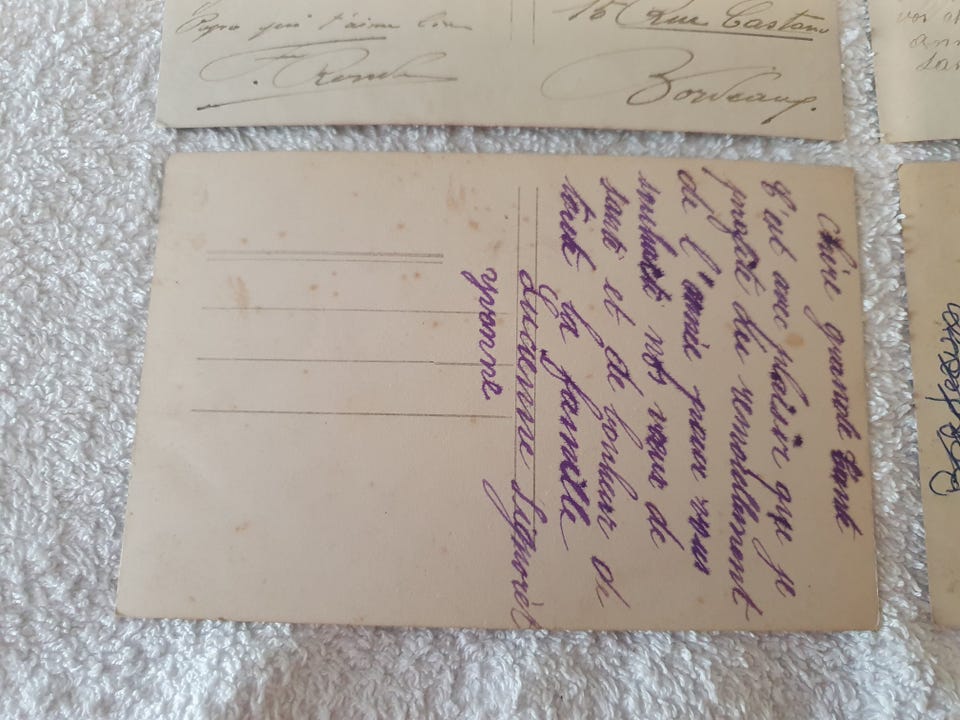 Papa qui t'aime bien
15 Rue Castano
Bordeaux.
Chère grande tante
C'est avec plaisir que je
profite du renouvellement
de l'année pour vous
souhaité nos vœux de
santé et de bonheur a
toute la famille
Lucienne
yvonne